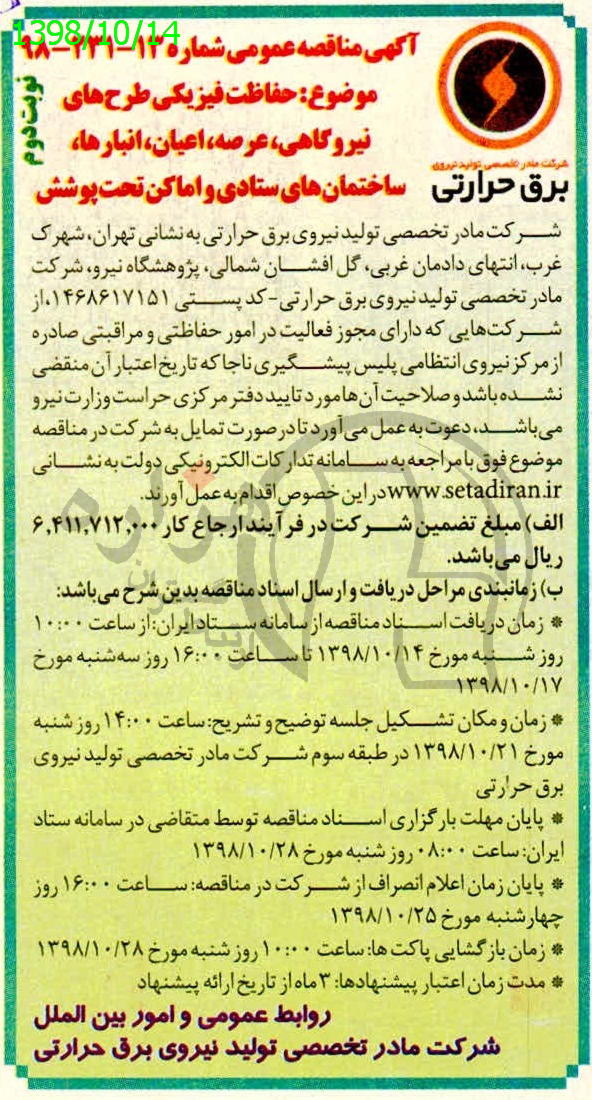 1398/10/14
آگهی مناقصه عمومی شماره ۱۳-۲۳۱-۹۸
موضوع: حفاظت فیزیکی طرح‌های
نیروگاهی، عرصه، اعیان، انبارها،
ساختمان‌های ستادی و اماکن تحت پوشش
نوبت دوم
شرکت مادر تخصصی تولید نیروی
برق حرارتی
شرکت مادر تخصصی تولید نیروی برق حرارتی به نشانی تهران، شهرک
غرب، انتهای دادمان غربی، گل افشان شمالی، پژوهشگاه نیرو، شرکت
مادر تخصصی تولید نیروی برق حرارتی- کد پستی ۱۴۶۸۶۱۷۱۵۱، از
شرکت‌هایی که دارای مجوز فعالیت در امور حفاظتی و مراقبتی صادره
از مرکز نیروی انتظامی پلیس پیشگیری ناجا که تاریخ اعتبار آن منقضی
نشده باشد و صلاحیت آن‌ها مورد تایید دفتر مرکزی حراست وزارت نیرو
می‌باشد، دعوت به عمل می‌آورد تا در صورت تمایل به شرکت در مناقصه
موضوع فوق با مراجعه به سامانه تدارکات الکترونیکی دولت به نشانی
www.setadiran.ir در این خصوص اقدام به عمل آورند.
الف) مبلغ تضمین شرکت در فرآیند ارجاع کار ۶,۴۱۱,۷۱۲,۰۰۰
ریال می‌باشد.
ب) زمانبندی مراحل دریافت و ارسال اسناد مناقصه بدین شرح می‌باشد:
* زمان دریافت اسناد مناقصه از سامانه ستاد ایران: از ساعت ۱۰:۰۰
روز شنبه مورخ ۱۳۹۸/۱۰/۱۴ تا ساعت ۱۶:۰۰ روز سه‌شنبه مورخ
۱۳۹۸/۱۰/۱۷
* زمان و مکان تشکیل جلسه توضیح و تشریح: ساعت ۱۴:۰۰ روز شنبه
مورخ ۱۳۹۸/۱۰/۲۱ در طبقه سوم شرکت مادر تخصصی تولید نیروی
برق حرارتی
* پایان مهلت بارگزاری اسناد مناقصه توسط متقاضی در سامانه ستاد
ایران: ساعت ۰۸:۰۰ روز شنبه مورخ ۱۳۹۸/۱۰/۲۸
* پایان زمان اعلام انصراف از شرکت در مناقصه: ساعت ۱۶:۰۰ روز
چهارشنبه مورخ ۱۳۹۸/۱۰/۲۵
* زمان بازگشایی پاکت ها: ساعت ۱۰:۰۰ روز شنبه مورخ ۱۳۹۸/۱۰/۲۸
* مدت زمان اعتبار پیشنهادها: ۳ ماه از تاریخ ارائه پیشنهاد
روابط عمومی و امور بین الملل
شرکت مادر تخصصی تولید نیروی برق حرارتی